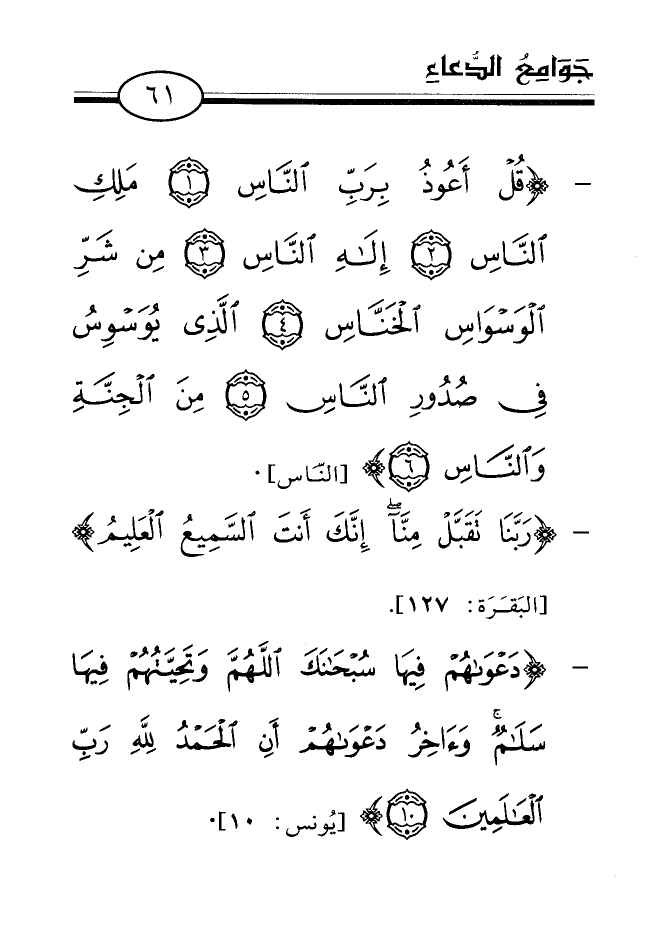 جَوَامِعُ الدُّعَاءِ
٦١
- ﴿قُلْ أَعُوذُ بِرَبِّ ٱلنَّاسِ ١ مَلِكِ
ٱلنَّاسِ ٢ إِلَٰهِ ٱلنَّاسِ ٣ مِن شَرِّ
ٱلْوَسْوَاسِ ٱلْخَنَّاسِ ٤ ٱلَّذِى يُوَسْوِسُ
فِى صُدُورِ ٱلنَّاسِ ٥ مِنَ ٱلْجِنَّةِ
وَٱلنَّاسِ ٦﴾ [النَّاس].
- ﴿رَبَّنَا تَقَبَّلْ مِنَّآۖ إِنَّكَ أَنتَ ٱلسَّمِيعُ ٱلْعَلِيمُ﴾
[البَقَرَة: ١٢٧].
- ﴿دَعْوَىٰهُمْ فِيهَا سُبْحَٰنَكَ ٱللَّهُمَّ وَتَحِيَّتُهُمْ فِيهَا
سَلَٰمٌۚ وَءَاخِرُ دَعْوَىٰهُمْ أَنِ ٱلْحَمْدُ لِلَّهِ رَبِّ
ٱلْعَٰلَمِينَ ١٠﴾ [يُونس: ١٠].